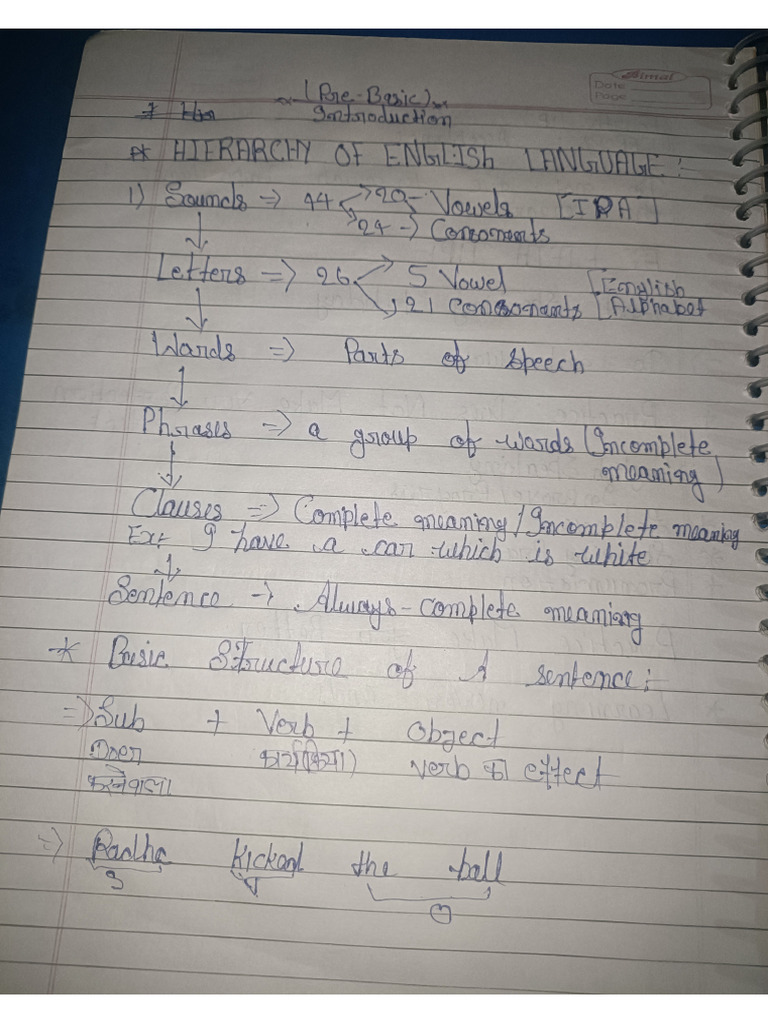 Bimal
Date
Page
(Pre-Basic)
Introduction
* HIERARCHY OF ENGLISH LANGUAGE:
1) Sounds => 44 -> 20 - Vowels [IPA]
-> 24 -> Consonants
↓
Letters => 26 -> 5 Vowel [English
-> 21 Consonants [Alphabet
↓
Words => Parts of speech
↓
Phrases => a group of words (Incomplete
meaning)
↓
Clauses => Complete meaning/Incomplete meaning
Ex: I have a car which is white
↓
Sentence -> Always-complete meaning
* Basic Structure of A sentence:
=> Sub + Verb + Object
Doer कार्य(क्रिया) verb का effect
करनेवाला
=> Radha Kicked the ball
S V O